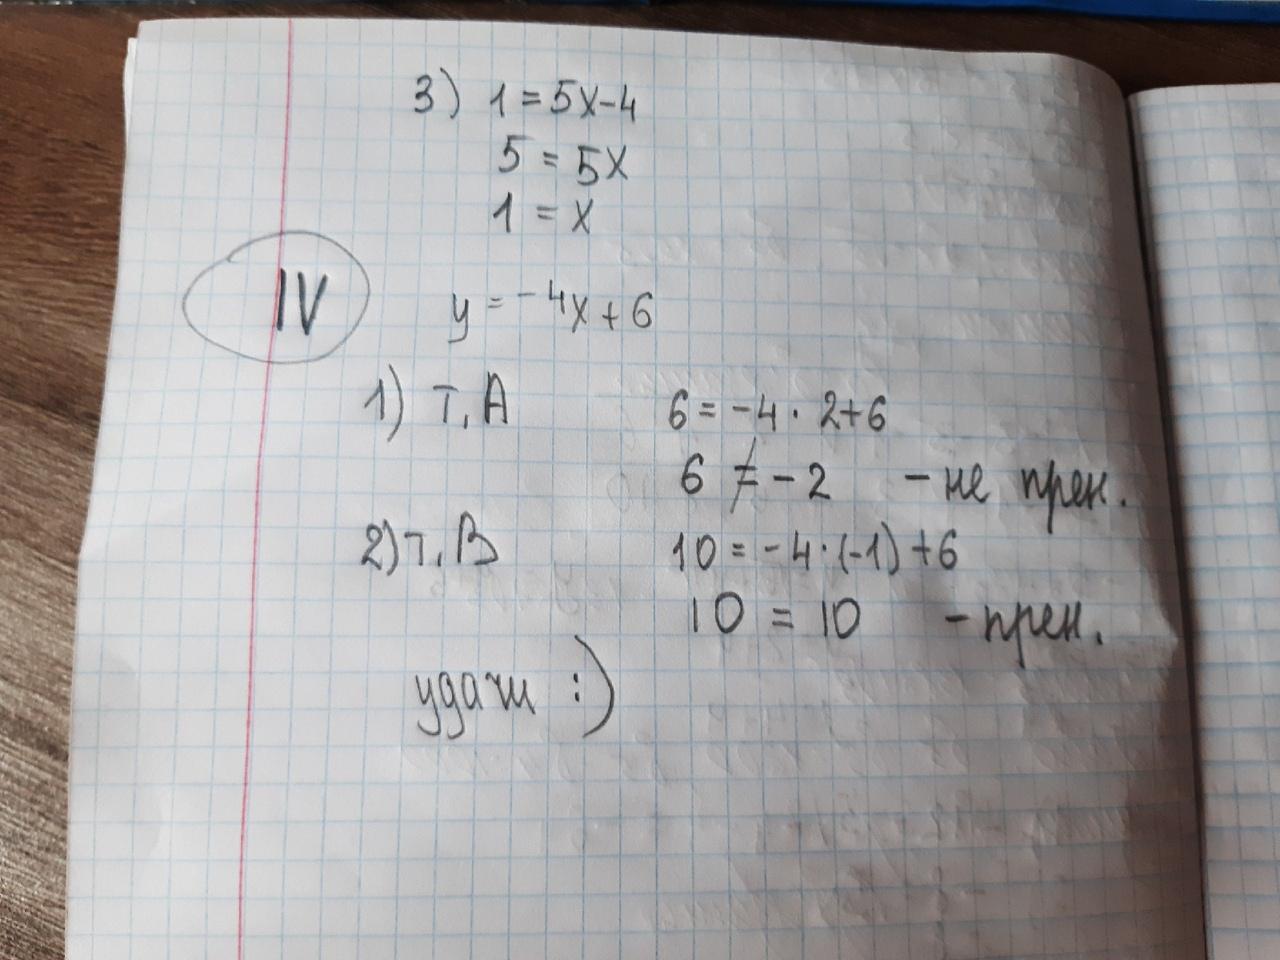 3) 1 = 5x-4
5 = 5x
1 = x
IV
y = -4x + 6
1) т. А 6 = -4 · 2+6
6 ≠ -2 - не прен.
2) т. В 10 = -4·(-1) +6
10 = 10 - прен.
удачи :)